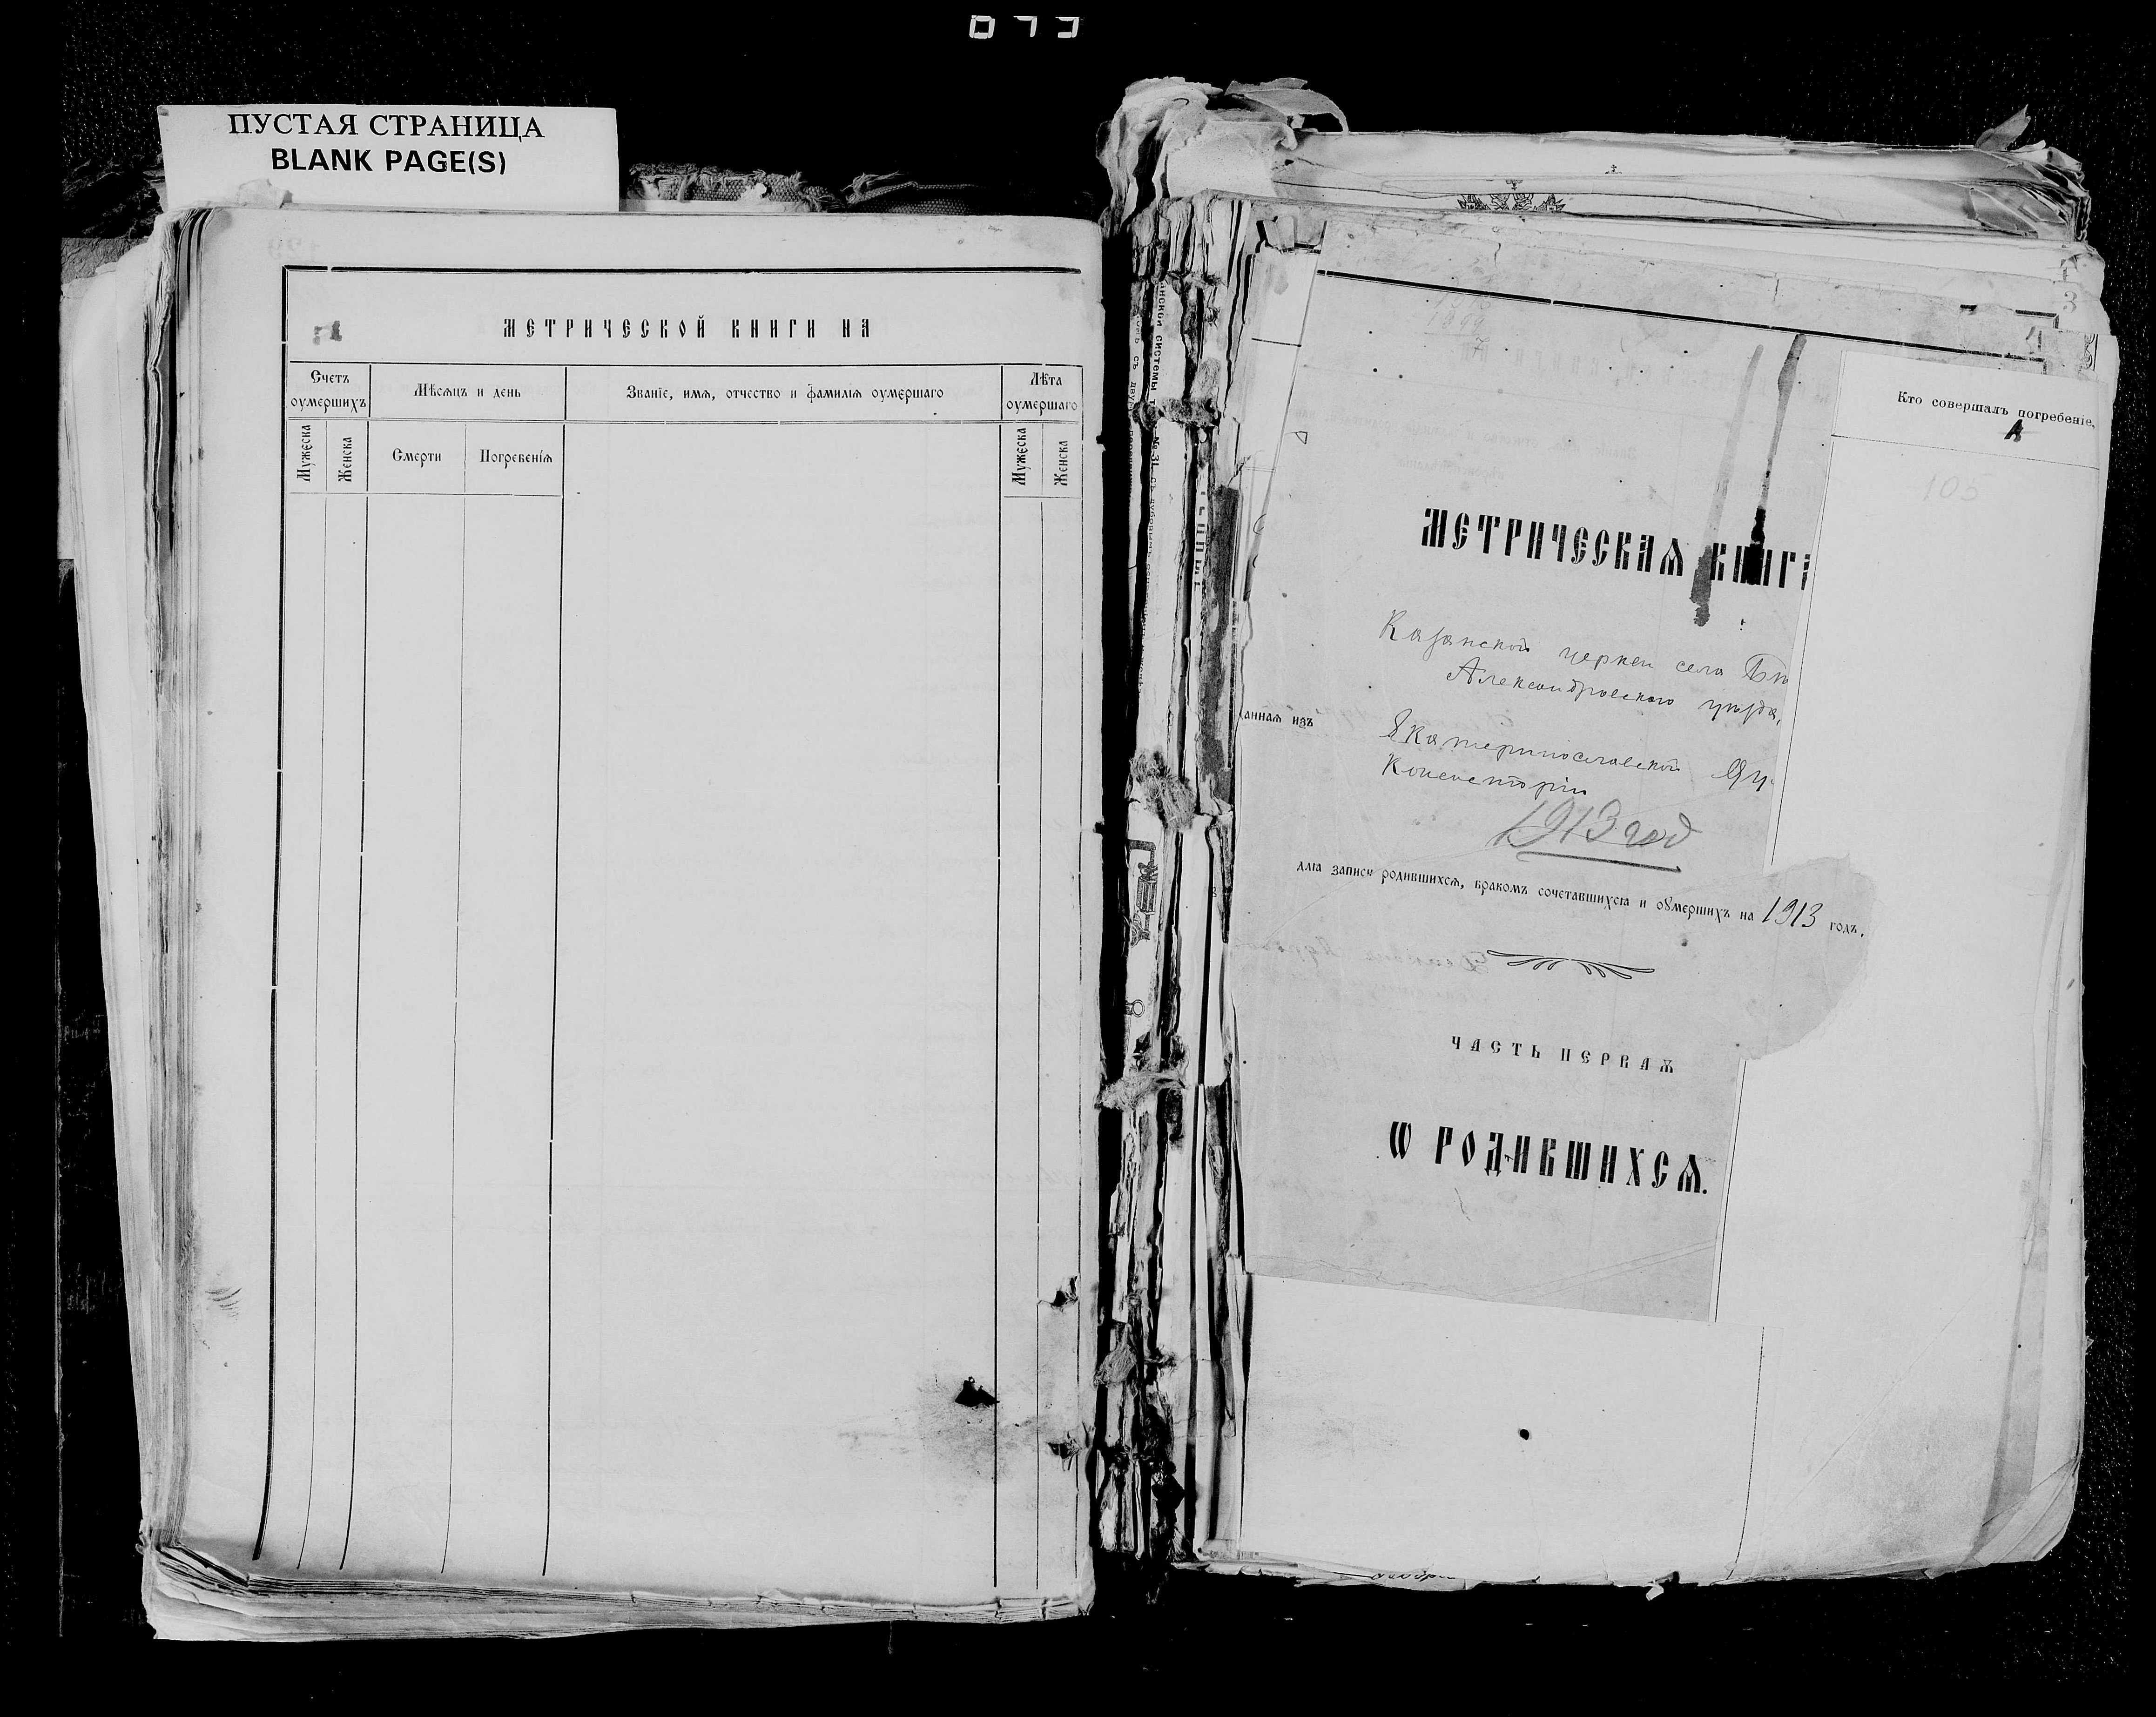 ПУСТАЯ СТРАНИЦА
BLANK PAGE(S)
МЕТРИЧЕСКОЙ КНИГИ НА
Счетъ оумершихъ
Мѣсяцъ и день
Званіе, имя, отчество и фамилія оумершаго
Лѣта оумершаго
Мужеска
Женска
Смерти
Погребенія
Мужеска
Женска
Кто совершалъ погребеніе.
105
МЕТРИЧЕСКАЯ КНИГА
Казанской церкви села
Александровскаго уѣзда,
анная изъ Екатеринославской Ду
Консисторіи
1913 год
для записи родившихся, бракомъ сочетавшихся и оумершихъ на 1913 годъ.
ЧАСТЬ ПЕРВАЯ
Ѡ РОДИВШИХСЯ.